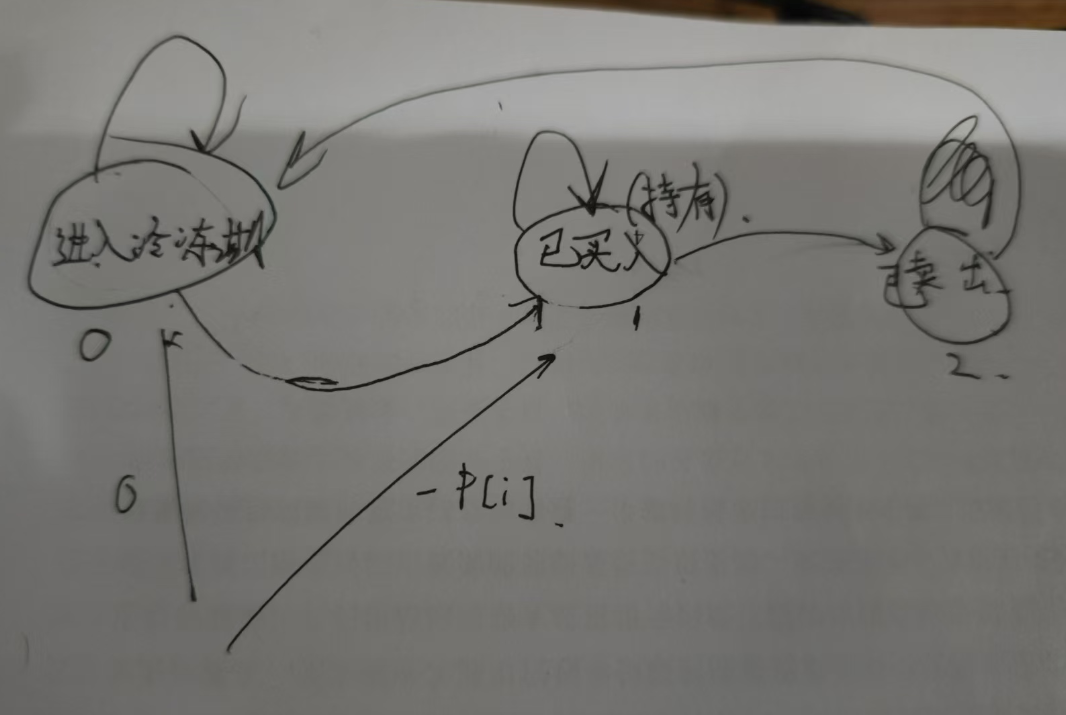 进入冷冻期
0
已买入
(持有).
1
已卖出
2
0
-P[i]